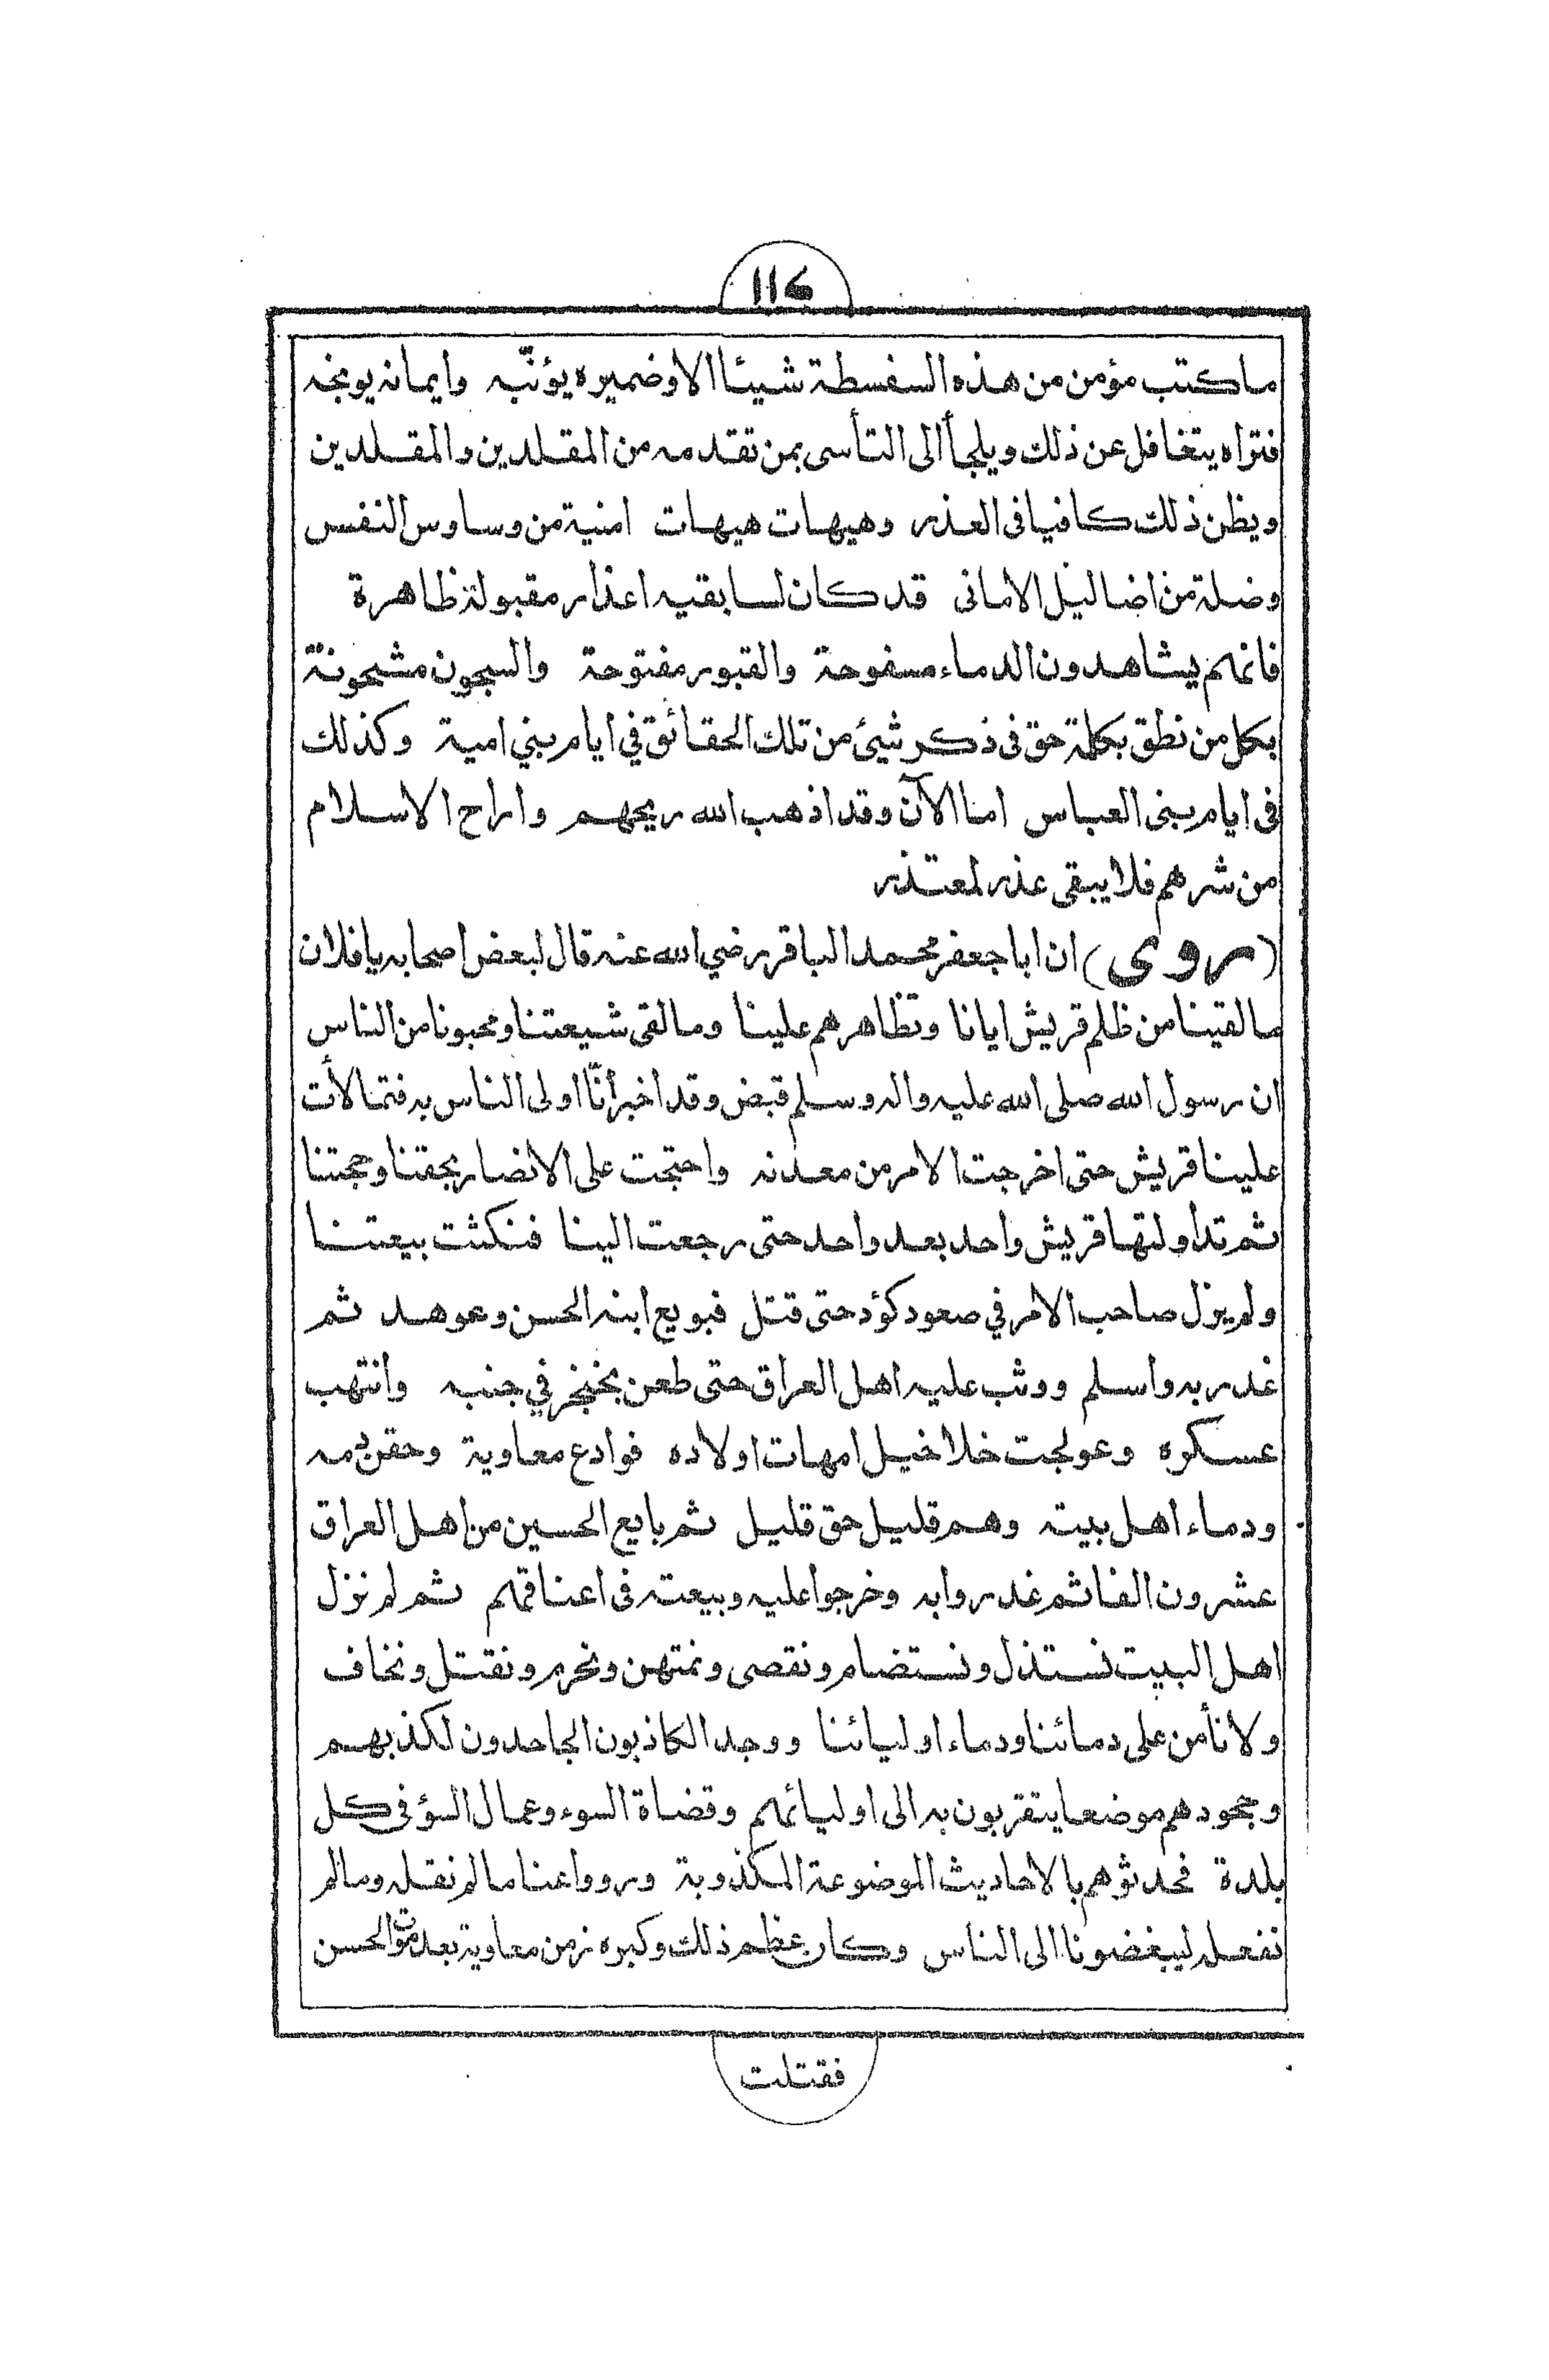 ١١٤
ما كتب مؤمن من هذه السفسطة شيئا الا وضميره يؤنّبه وايمانه يوبخه
فتراه يتغافل عن ذلك ويلجأ الى التأسى بمن تقدمه من المقلدين والمقلدين
ويظن ذلك كافيا فى العذر وهيهات هيهات امنية من وساوس النفس
وضلة من اضاليل الامانى قد كان لسابقيه اعذار مقبولة ظاهرة
فانهم يشاهدون الدماء مسفوحة والقبور مفتوحة والسجون مشحونة
بكل من نطق بكلمة حق فى ذكر شيئ من تلك الحقائق في ايام بني امية وكذلك
فى ايام بنى العباس اما الآن وقد اذهب الله ريحهم واراح الاسلام
من شرهم فلا يبقى عذر لمعتذر
(روى) ان ابا جعفر محمد الباقر رضي الله عنه قال لبعض اصحابه يا فلان
ما لقينا من ظلم قريش ايانا وتظاهرهم علينا وما لقى شيعتنا ومحبونا من الناس
ان رسول الله صلى الله عليه واله وسلم قبض وقد اخبر أنّا اولى الناس به فتمالأت
علينا قريش حتى اخرجت الامر من معدنه واحتجت على الانصار بحقنا وحجتنا
ثم تداولتها قريش واحد بعد واحد حتى رجعت الينا فنكثت بيعتنا
ولم يزل صاحب الامر في صعود كؤد حتى قتل فبويع ابنه الحسن وعوهد ثم
غدر به واسلم ووثب عليه اهل العراق حتى طعن بخنجر في جنبه وانتهب
عسكره وعولجت خلاخيل امهات اولاده فوادع معاوية وحقن دمه
ودماء اهل بيته وهم قليل حق قليل ثم بايع الحسين من اهل العراق
عشرون الفا ثم غدروا به وخرجوا عليه وبيعته فى اعناقهم ثم لم نزل
اهل البيت نستذل ونستضام ونقصى ونمتهن ونحرم ونقتل ونخاف
ولا نأمن على دمائنا ودماء اوليائنا ووجد الكاذبون الجاحدون لكذبهم
وجحودهم موضعا يتقربون به الى اوليائهم وقضاة السوء وعمال السؤ فى كل
بلدة فحدثوهم بالاحاديث الموضوعة المكذوبة ورووا عنا ما لم نقله وما لم
نفعله ليبغضونا الى الناس وكان عظم ذلك وكبره زمن معاوية بعد موت الحسن
فقتلت